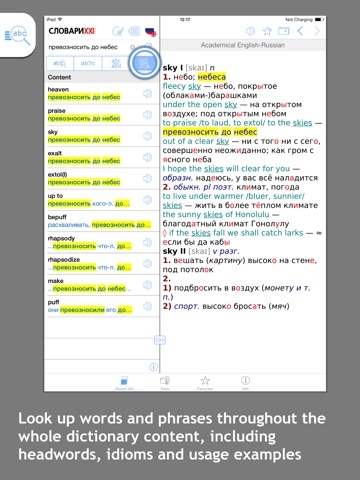 iPad
12:17
Not Charging
СЛОВАРИXXI
превозносить до небес
abc
ab?c
Content
Academical English-Russian
heaven
превозносить до небес
praise
превозносить до небес
sky
превозносить до небес
exalt
превозносить до небес
extol(l)
превозносить до небес
up to
превозносить кого-л. до…
bepuff
расхваливать, превозносить до…
rhapsody
…превозносить что-л. до…
rhapsodize
…превозносить что-л. до…
make
…превозносить до небес…
puff
они превозносили его до…
sky I [skaɪ] n
1. небо; небеса
fleecy sky — небо, покрытое
(облаками-)барашками
under the open sky — на открытом
воздухе; под открытым небом
to praise /to laud, to extol/ to the skies —
превозносить до небес
out of a clear sky — ни с того ни с сего,
совершенно неожиданно; как гром с
ясного неба
I hope the skies will clear for you —
образн. надеюсь, у вас всё наладится
2. обыкн. pl поэт. климат, погода
to live under warmer /bluer, sunnier/
skies — жить в более тёплом климате
the sunny skies of Honolulu —
благодатный климат Гонолулу
◊ if the skies fall we shall catch larks — ≈
если бы да кабы
sky II v разг.
1. вешать (картину) высоко на стене,
под потолок
2.
1) подбросить в воздух (монету и т.
п.)
2) спорт. высоко бросать (мяч)
Favorites
Info
Look up words and phrases throughout the
whole dictionary content, including
headwords, idioms and usage examples